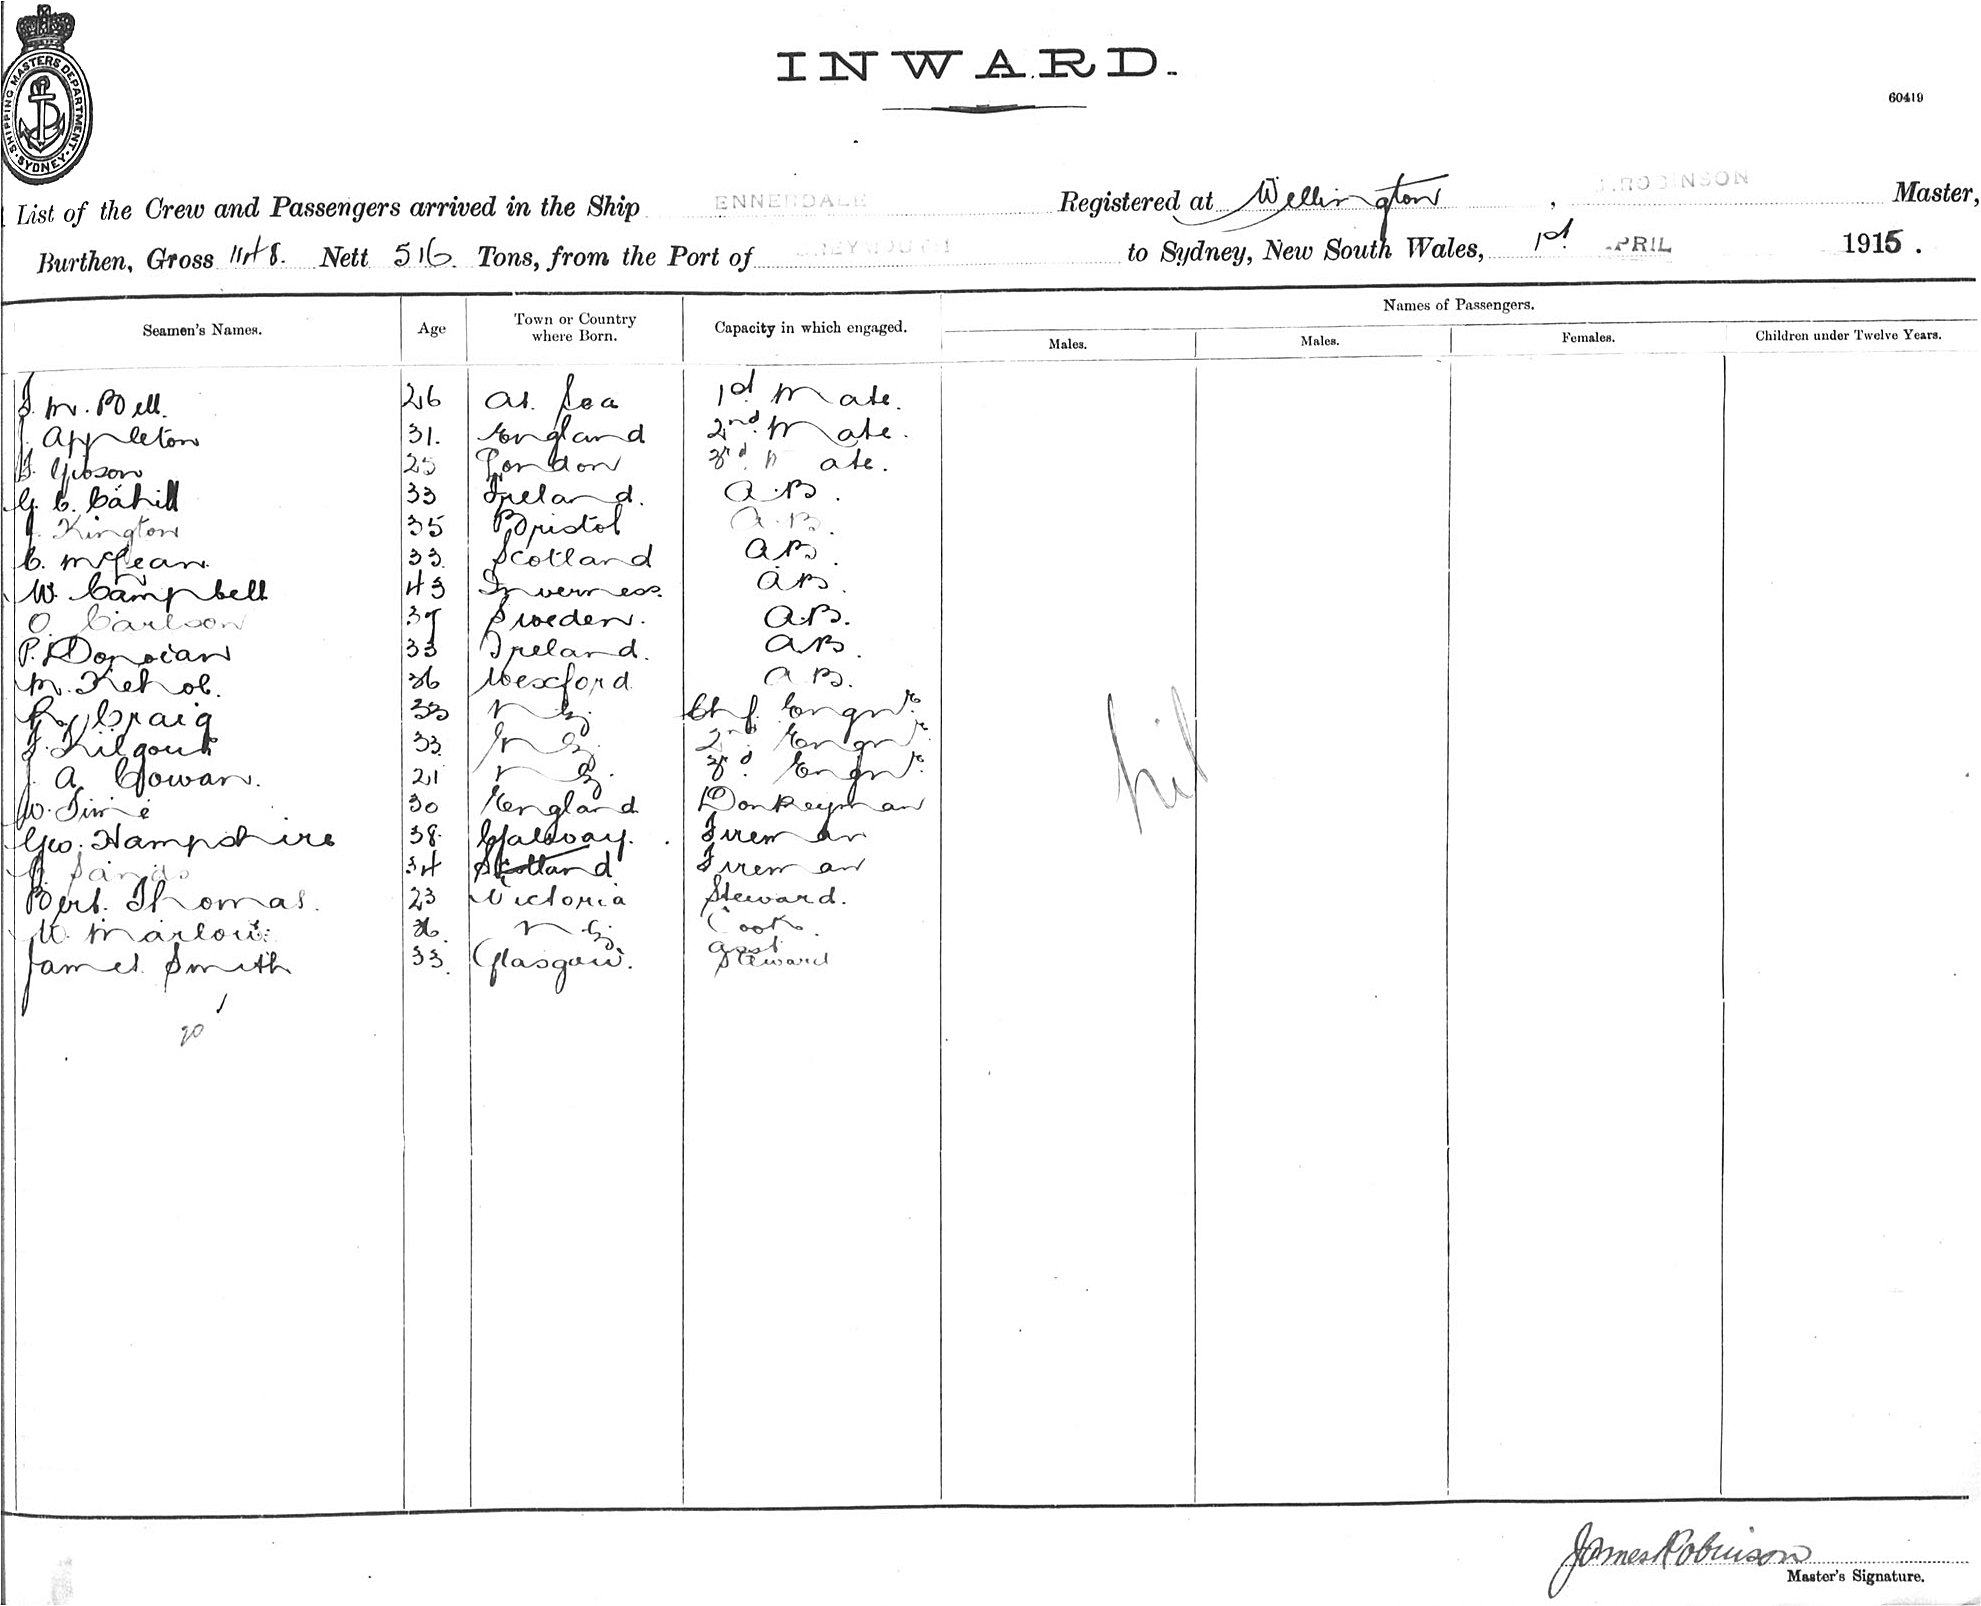 SHIPPING MASTERS DEPARTMENT. SYDNEY.
INWARD.
60419
List of the Crew and Passengers arrived in the Ship ENNERDALE Registered at Wellington, J. ROBINSON Master,
Burthen, Gross 1148. Nett 516. Tons, from the Port of GREYMOUTH to Sydney, New South Wales, 1st APRIL 1915.
Names of Passengers.
Seamen's Names. Age Town or Country where Born. Capacity in which engaged. Males. Males. Females. Children under Twelve Years.
J. M. Bell. 26 At Sea 1st Mate.
J. Appleton 31. England 2nd Mate.
J. Gibson 25 London 3rd Mate.
G. C. Cahill 33 Ireland. A.B.
J. Kington 35 Bristol A.B.
C. McLean. 33. Scotland A.B.
W. Campbell 43 Inverness. A.B.
O. Carlson Sweden. A.B.
P. Donovan 33 Ireland. A.B.
M. Kehoe. 36 Wexford A.B.
Craig 33 N Z. Chf. Engnr.
J. Kilgour 33. N Z. 2nd. Engnr.
J. A. Cowan. 21 N Z. 3rd. Engnr.
W. 30 England Donkeyman
Geo. Hampshire 38. Galway. Fireman
Sands 34 Scotland Fireman
Bert. Thomas. 23 Victoria Steward.
Marlow. 36. N Z Cook.
James Smith 33. Glasgow. Asst Steward
20
Nil
James Robinson
Master's Signature.